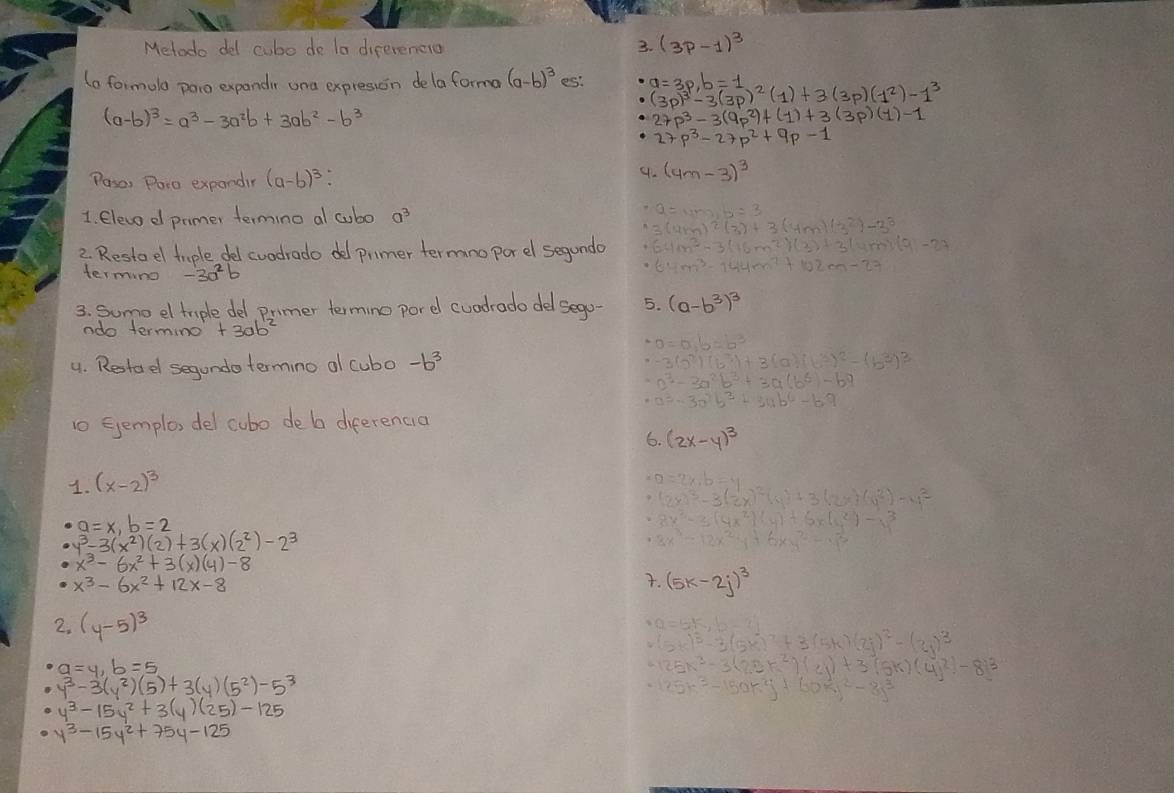 Metodo del cubo de la diferencia
la formula para expandir una expresión de la forma (a-b)³ es:
(a-b)³ = a³ - 3a²b + 3ab² - b³
Pasos Para expandir (a-b)³:
1. Eleva el primer termino al cubo a³
2. Resta el triple del cuadrado del primer termino por el segundo
termino -3a²b
3. Suma el triple del primer termino por el cuadrado del segu-
ndo termino + 3ab²
4. Resta el segundo termino al cubo -b³
10 Ejemplos del cubo de la diferencia
1. (x-2)³
• a=x, b=2
• y³-3(x²)(2)+3(x)(2²)-2³
• x³-6x²+3(x)(4)-8
• x³-6x²+12x-8
2. (y-5)³
• a=y, b=5
• y³-3(y²)(5)+3(y)(5²)-5³
• y³-15y²+3(y)(25)-125
• y³-15y²+75y-125
3. (3p-1)³
• a=3p, b=1
• (3p)³-3(3p)²(1)+3(3p)(1²)-1³
• 27p³-3(9p²)+(1)+3(3p)(1)-1
• 27p³-27p²+9p-1
4. (4m-3)³
• a=4m, b=3
• 3(4m)²(3)+3(4m)(3²)-3³
• 64m³-3(16m²)(3)+3(4m)(9)-27
• 64m³-144m²+102m-27
5. (a-b³)³
• a=a, b=b³
• -3(a²)(b³)+3(a)(b³)²-(b³)³
• a³-3a²b³+3a(b⁶)-b9
• a³-3a²b³+3ab⁶-b9
6. (2x-y)³
• a=2x, b=y
• (2x)³-3(2x)²(y)+3(2x)(y²)-y³
• 8x³-3(4x²)(y)+6x(y²)-y³
• 8x³-12x²y+6xy²-y³
7. (5k-2j)³
• a=5k, b=2j
• (5k)³-3(5k)²+3(5k)(2j)²-(2j)³
• 125k³-3(25k²)(2j)+3(5k)(4j²)-8j³
• 125k³-150k²j+60kj²-8j³